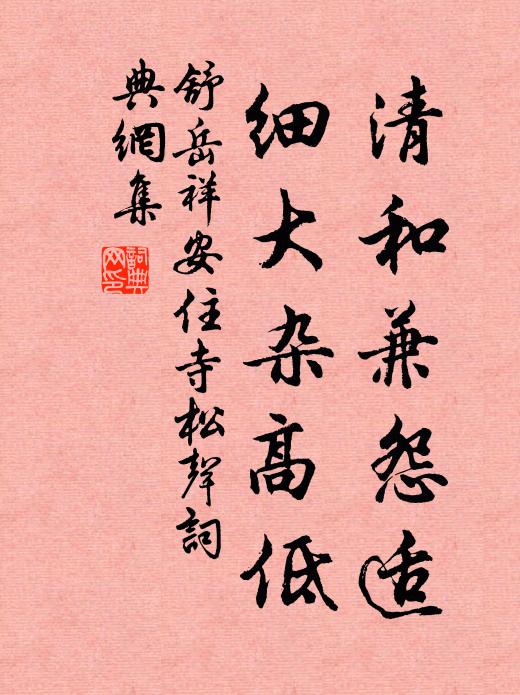 清和兼怨适
细大杂高低
舒岳祥安住寺松聲詞
典網集
詞典
网印